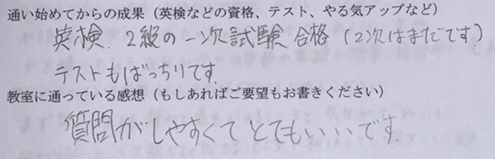 通い始めてからの成果（英検などの資格、テスト、やる気アップなど）
英検 2級の一次試験 合格（2次はまだです）
テストもばっちりです
教室に通っている感想（もしあればご要望もお書きください）
質問がしやすくてとてもいいです